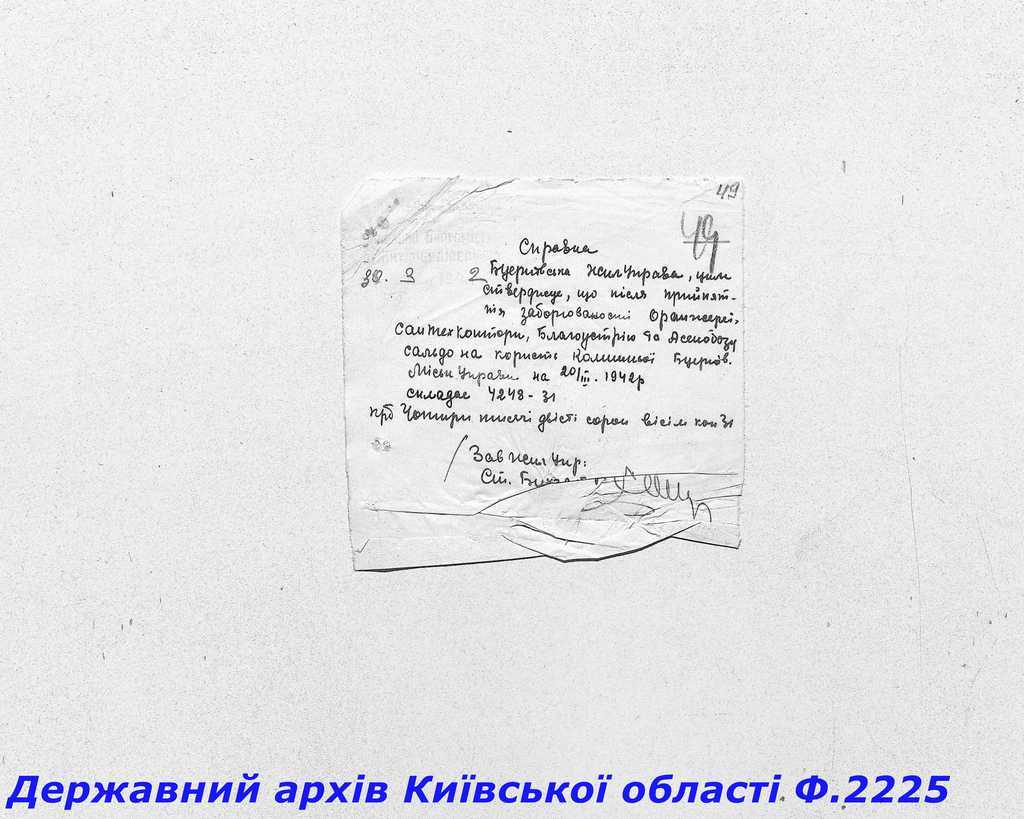 49
49
Справка
30. 3 2 Буднівська ЖилУправа, цим
стверджує, що після прийнят-
тя заборгованості Оранжереї,
Сантехконтори, Благоустрію та Асенобозу
сальдо на користь Колишньої
МіськУправи на 20/III. 1942р
складає 4248-31
прб Чотири тисячі двісті сорок вісім коп 31
ЗавЖилУпр:
Ст.
Державний архів Київської області Ф.2225